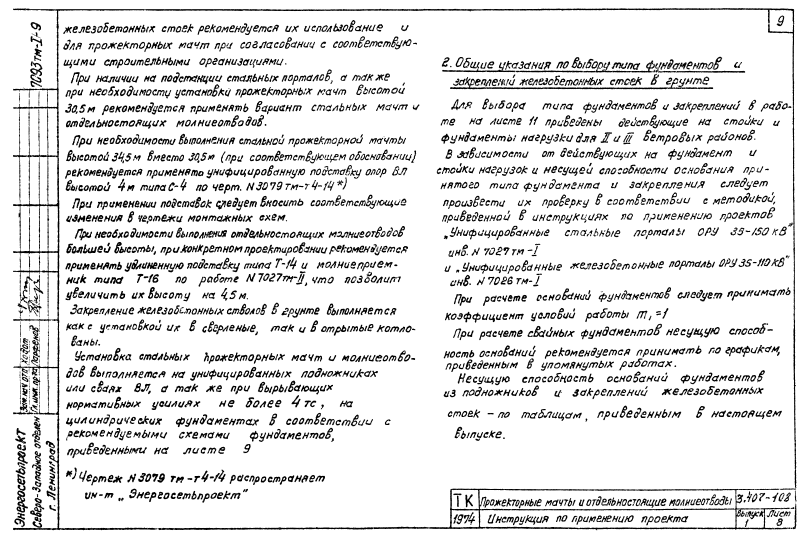 9
7093тм-I-9
железобетонных стоек рекомендуется их использование и
для прожекторных мачт при согласовании с соответствую-
щими строительными организациями.
При наличии на подстанции стальных порталов, а так же
при необходимости установки прожекторных мачт высотой
30,5м рекомендуется применять вариант стальных мачт и
отдельностоящих молниеотводов.
При необходимости выполнения стальной прожекторной мачты
высотой 34,5м вместо 30,5м (при соответствующем обосновании)
рекомендуется применять унифицированную подставку опор ВЛ
высотой 4м типа С-4 по черт. N3079тм-т4-14*)
При применении подставок следует вносить соответствующие
изменения в чертежи монтажных схем.
При необходимости выполнения отдельностоящих молниеотводов
большей высоты, при конкретном проектировании рекомендуется
применять удлиненную подставку типа Т-14 и молниеприем-
ник типа Т-16 по работе N7027тм-II, что позволит
увеличить их высоту на 4,5м.
Закрепление железобетонных стволов в грунте выполняется
как с установкой их в сверленые, так и в открытые котло-
ваны.
Установка стальных прожекторных мачт и молниеотво-
дов выполняется на унифицированных подножниках
или сваях ВЛ, а так же при вырывающих
нормативных усилиях не более 4тс, на
цилиндрических фундаментах в соответствии с
рекомендуемыми схемами фундаментов,
приведенными на листе 9
*) Чертеж N3079 тм-т4-14 распространяет
ин-т „Энергосетьпроект"
2. Общие указания по выбору типа фундаментов и
закреплений железобетонных стоек в грунте
Для выбора типа фундаментов и закреплений в рабо-
те на листе 11 приведены действующие на стойки и
фундаменты нагрузки для II и III ветровых районов.
В зависимости от действующих на фундамент и
стойки нагрузок и несущей способности основания при-
нятого типа фундамента и закрепления следует
произвести их проверку в соответствии с методикой,
приведенной в инструкциях по применению проектов
„Унифицированные стальные порталы ОРУ 35-150 кВ"
инв. N 7027тм-I
и „Унифицированные железобетонные порталы ОРУ 35-110кВ"
инв. N 7026тм-I
При расчете оснований фундаментов следует принимать
коэффициент условий работы m₁=1
При расчете свайных фундаментов несущую способ-
ность оснований рекомендуется принимать по графикам,
приведенным в упомянутых работах.
Несущую способность оснований фундаментов
из подножников и закреплений железобетонных
стоек – по таблицам, приведенным в настоящем
выпуске.
Энергосетьпроект
Северо-Западное отделен
г. Ленинград
ТК
Прожекторные мачты и отдельностоящие молниеотводы
3.407-108
1974
Инструкция по применению проекта
Выпуск 1
Лист 8